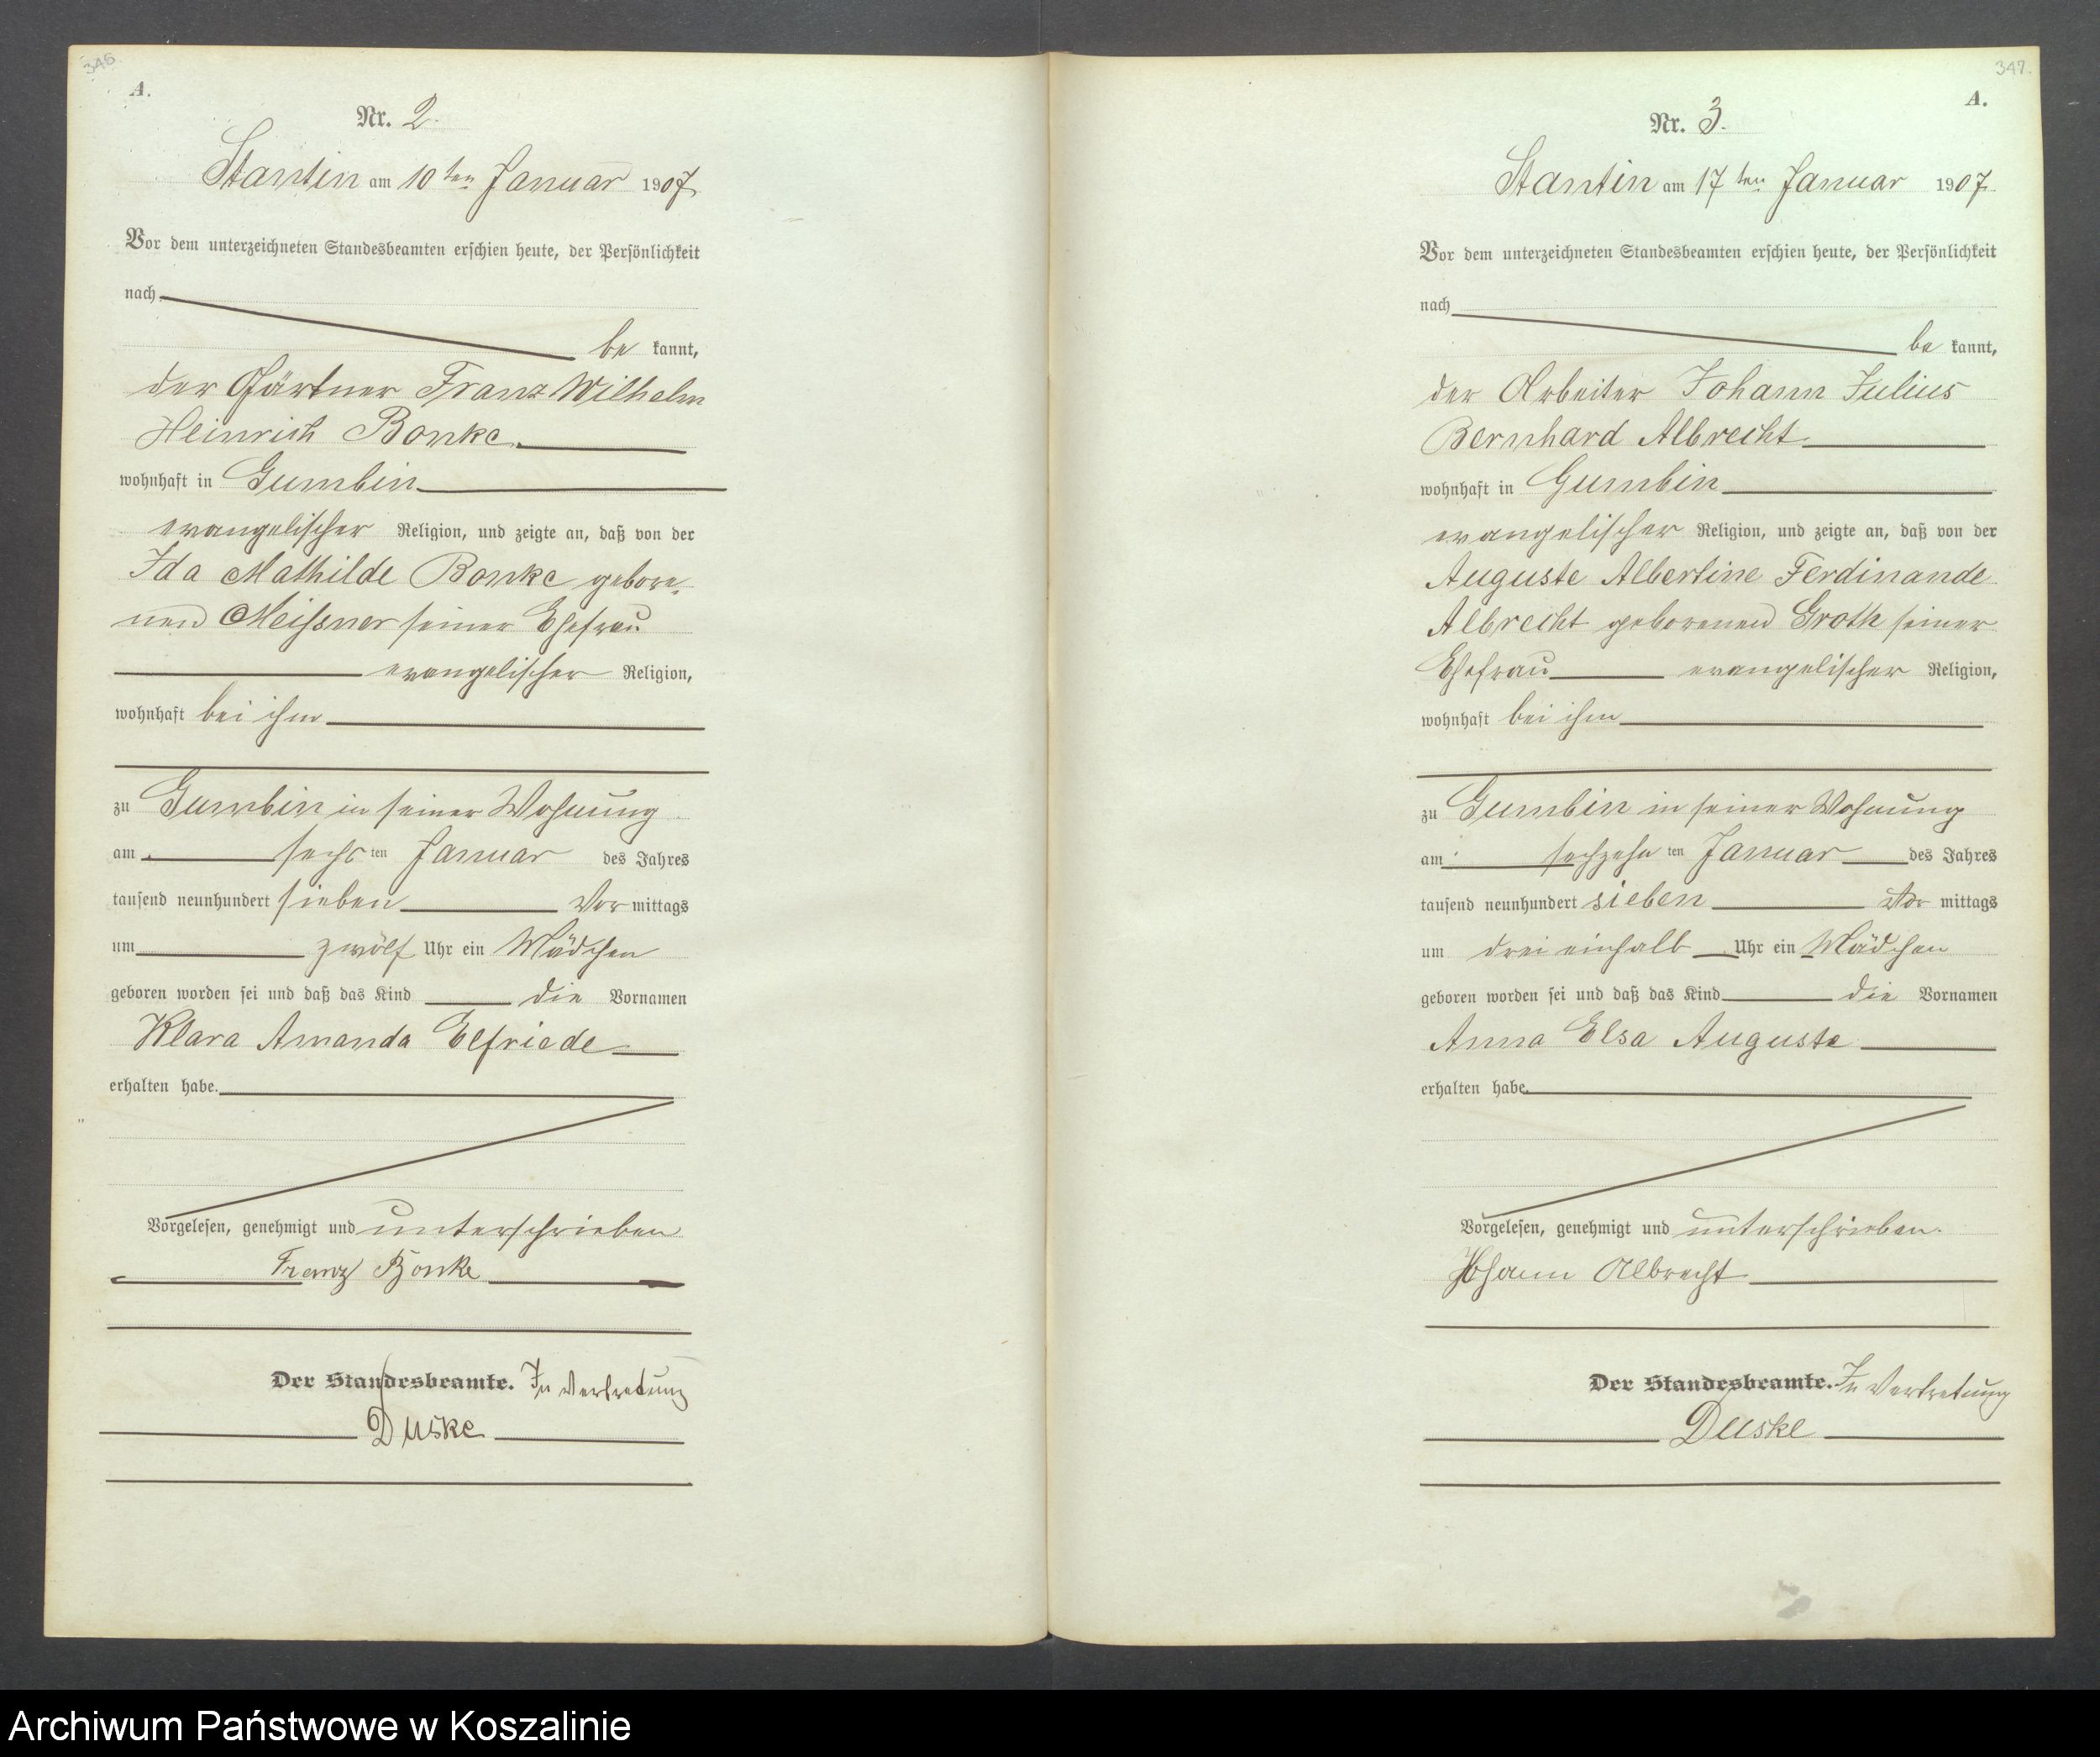 346.
A.
Nr. 2.
Stantin am 10ten Januar 1907.
Vor dem unterzeichneten Standesbeamten erschien heute, der Persönlichkeit
nach
be kannt,
der Gärtner Franz Wilhelm
Heinrich Bonke.
wohnhaft in Gumbin
evangelischer Religion, und zeigte an, daß von der
Ida Mathilde Bonke gebore„
nen Meißner seiner Ehefrau
evangelischer Religion,
wohnhaft bei ihm
zu Gumbin in seiner Wohnung
am sechs ten Januar des Jahres
tausend neunhundert sieben Vor mittags
um zwölf Uhr ein Mädchen
geboren worden sei und daß das Kind die Vornamen
Klara Amanda Elfriede
erhalten habe.
Vorgelesen, genehmigt und unterschrieben
Franz Bonke
Der Standesbeamte. In Vertretung
Duske
347.
A.
Nr. 3.
Stantin am 17ten Januar 1907.
Vor dem unterzeichneten Standesbeamten erschien heute, der Persönlichkeit
nach
be kannt,
der Arbeiter Johann Julius
Bernhard Albrecht.
wohnhaft in Gumbin
evangelischer Religion, und zeigte an, daß von der
Auguste Albertine Ferdinande
Albrecht geborenen Groth seiner
Ehefrau evangelischer Religion,
wohnhaft bei ihm
zu Gumbin in seiner Wohnung
am sechzehn ten Januar des Jahres
tausend neunhundert sieben Vor mittags
um drei einhalb Uhr ein Mädchen
geboren worden sei und daß das Kind die Vornamen
Anna Elsa Auguste
erhalten habe.
Vorgelesen, genehmigt und unterschrieben.
Johann Albrecht
Der Standesbeamte. In Vertretung
Duske
Archiwum Państwowe w Koszalinie